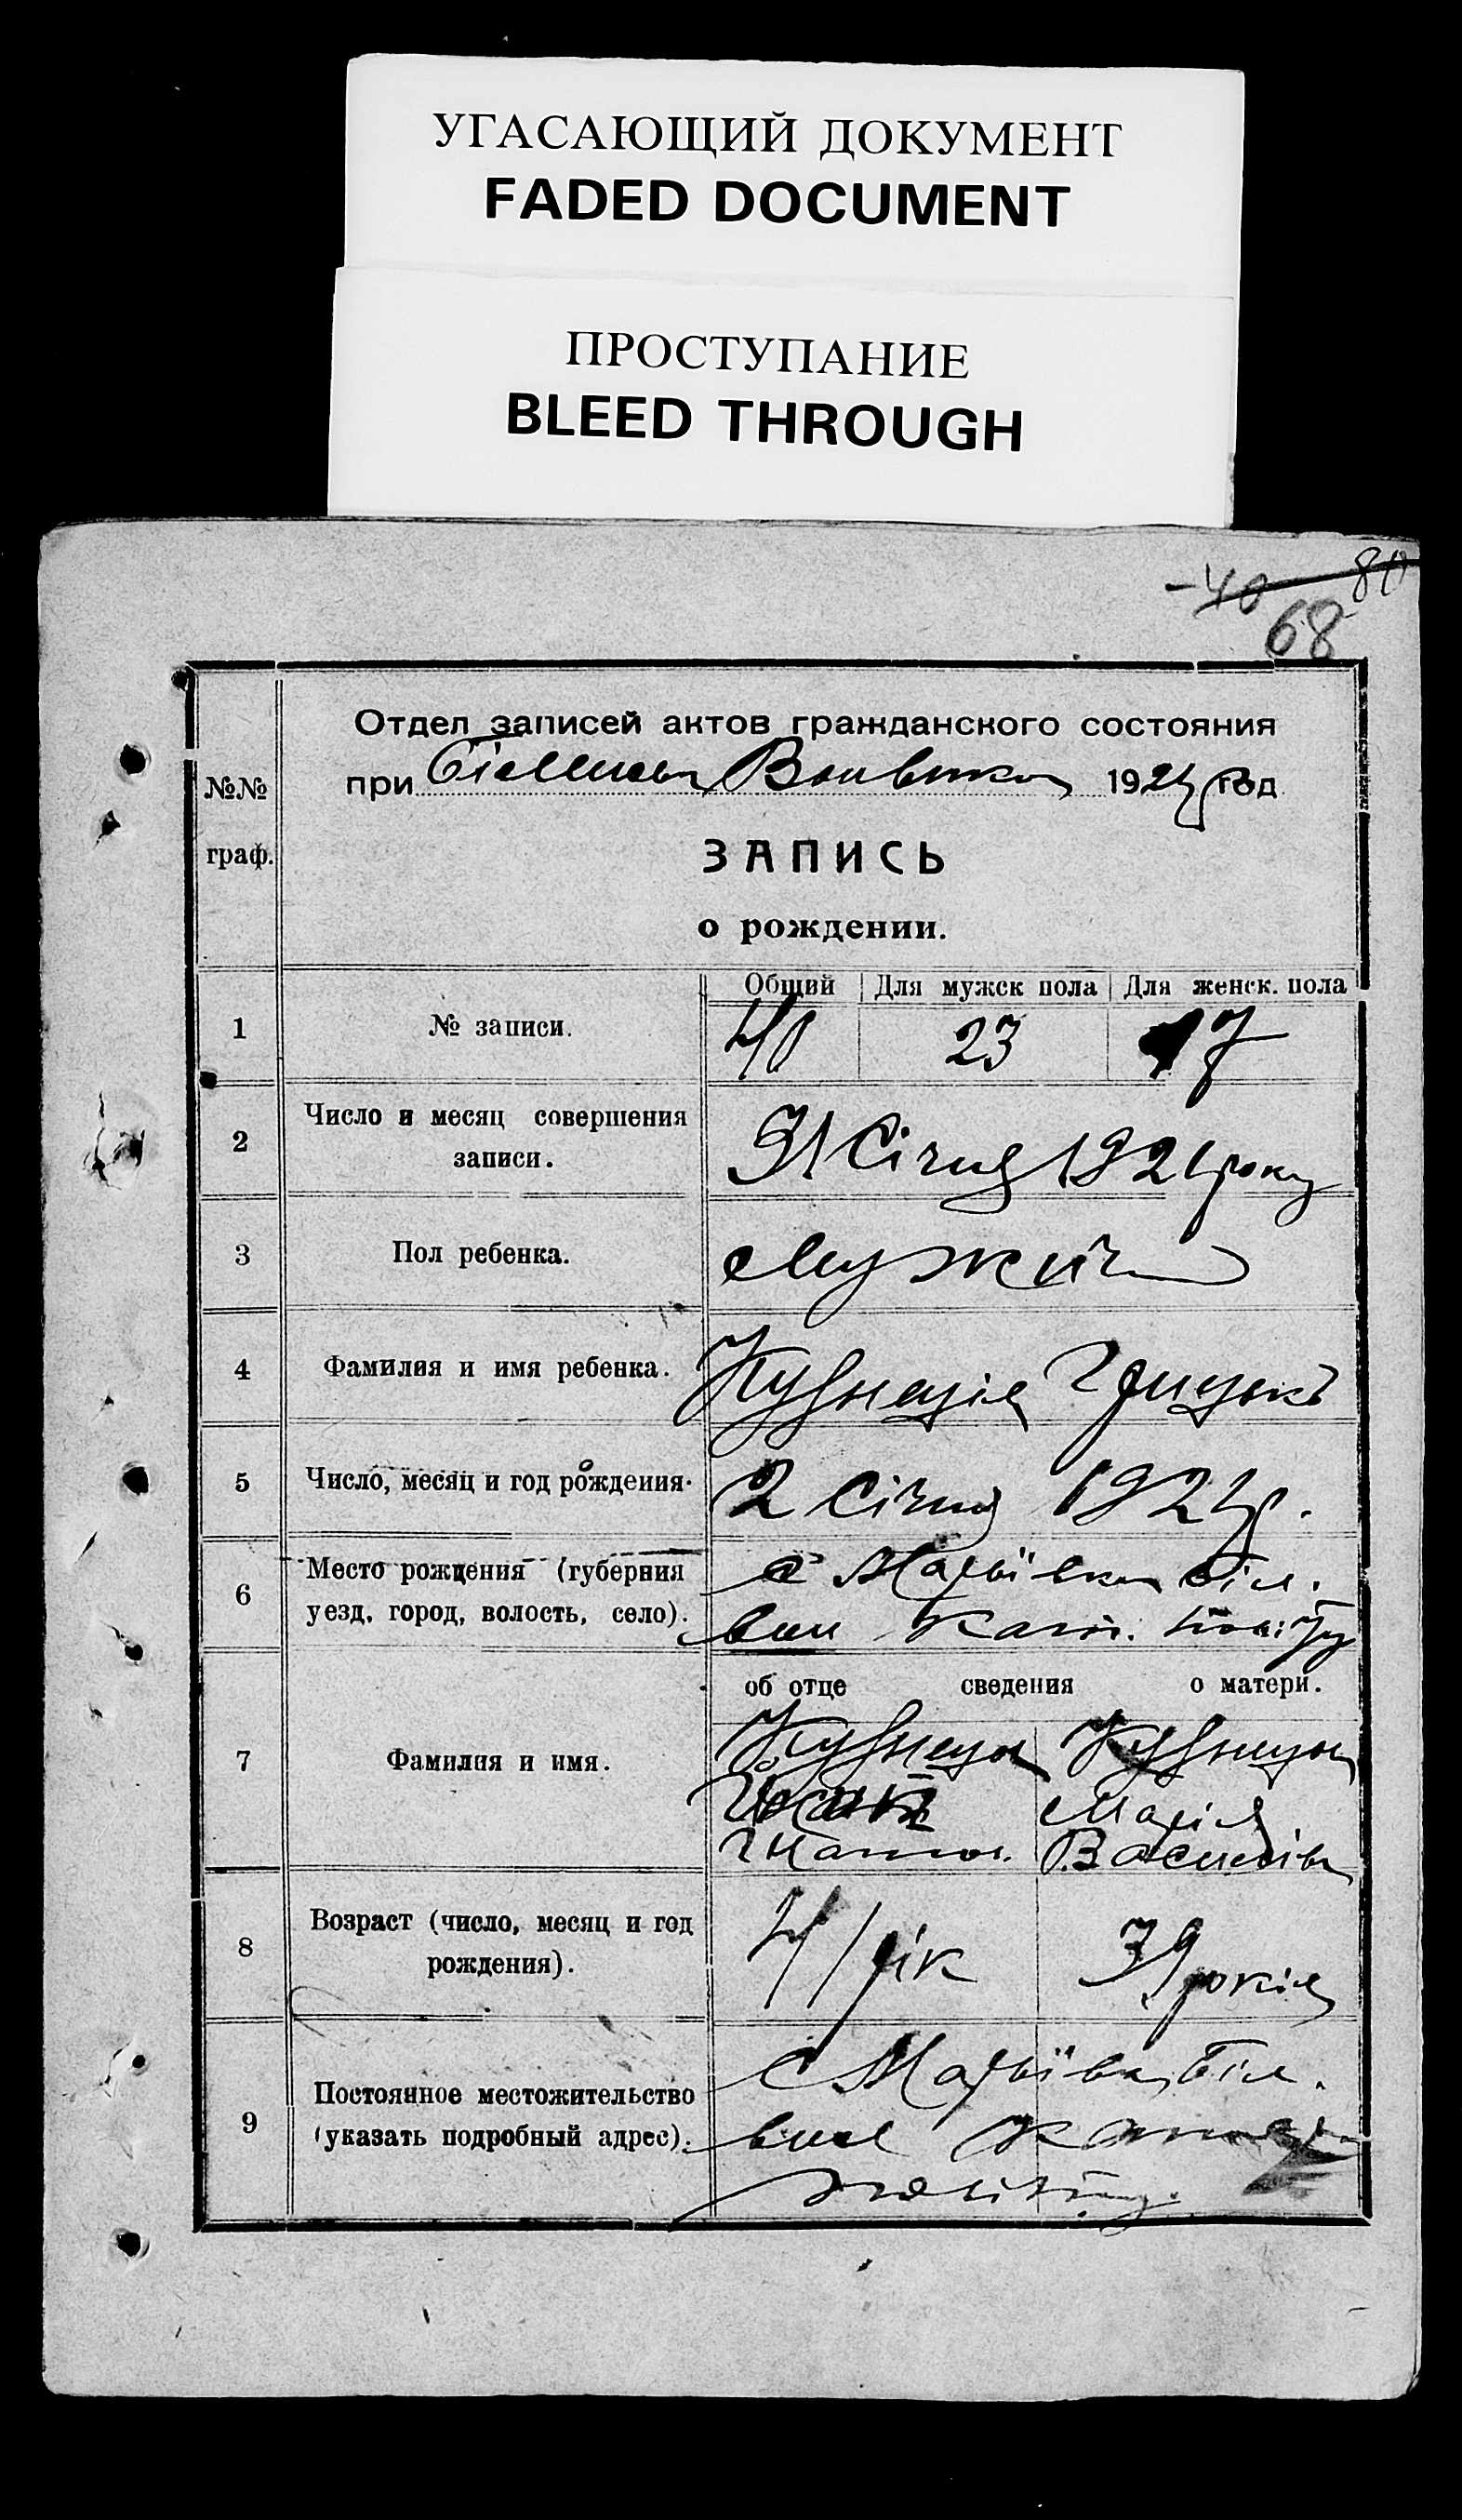 УГАСАЮЩИЙ ДОКУМЕНТ
FADED DOCUMENT
ПРОСТУПАНИЕ
BLEED THROUGH
40 80
68
№№ граф.
Отдел записей актов гражданского состояния
при 1924 год
ЗАПИСЬ
о рождении.
Общий Для мужск пола Для женск. пола
1 № записи. 40 23 17
2 Число и месяц совершения
записи. 31 Січня 1924 року
3 Пол ребенка.
4 Фамилия и имя ребенка. Грицько
5 Число, месяц и год рождения. 2 Січня 1924 р.
6 Место рождения (губерния
уезд, город, волость, село).
с Мар'ївка Біл.
вол Кат. повіту
об отце сведения о матери.
7 Фамилия и имя.
Марія
Василів
8 Возраст (число, месяц и год
рождения).
41 рік 39 років
9 Постоянное местожительство
(указать подробный адрес).
с Мар'ївка Біл.
вол
повіту